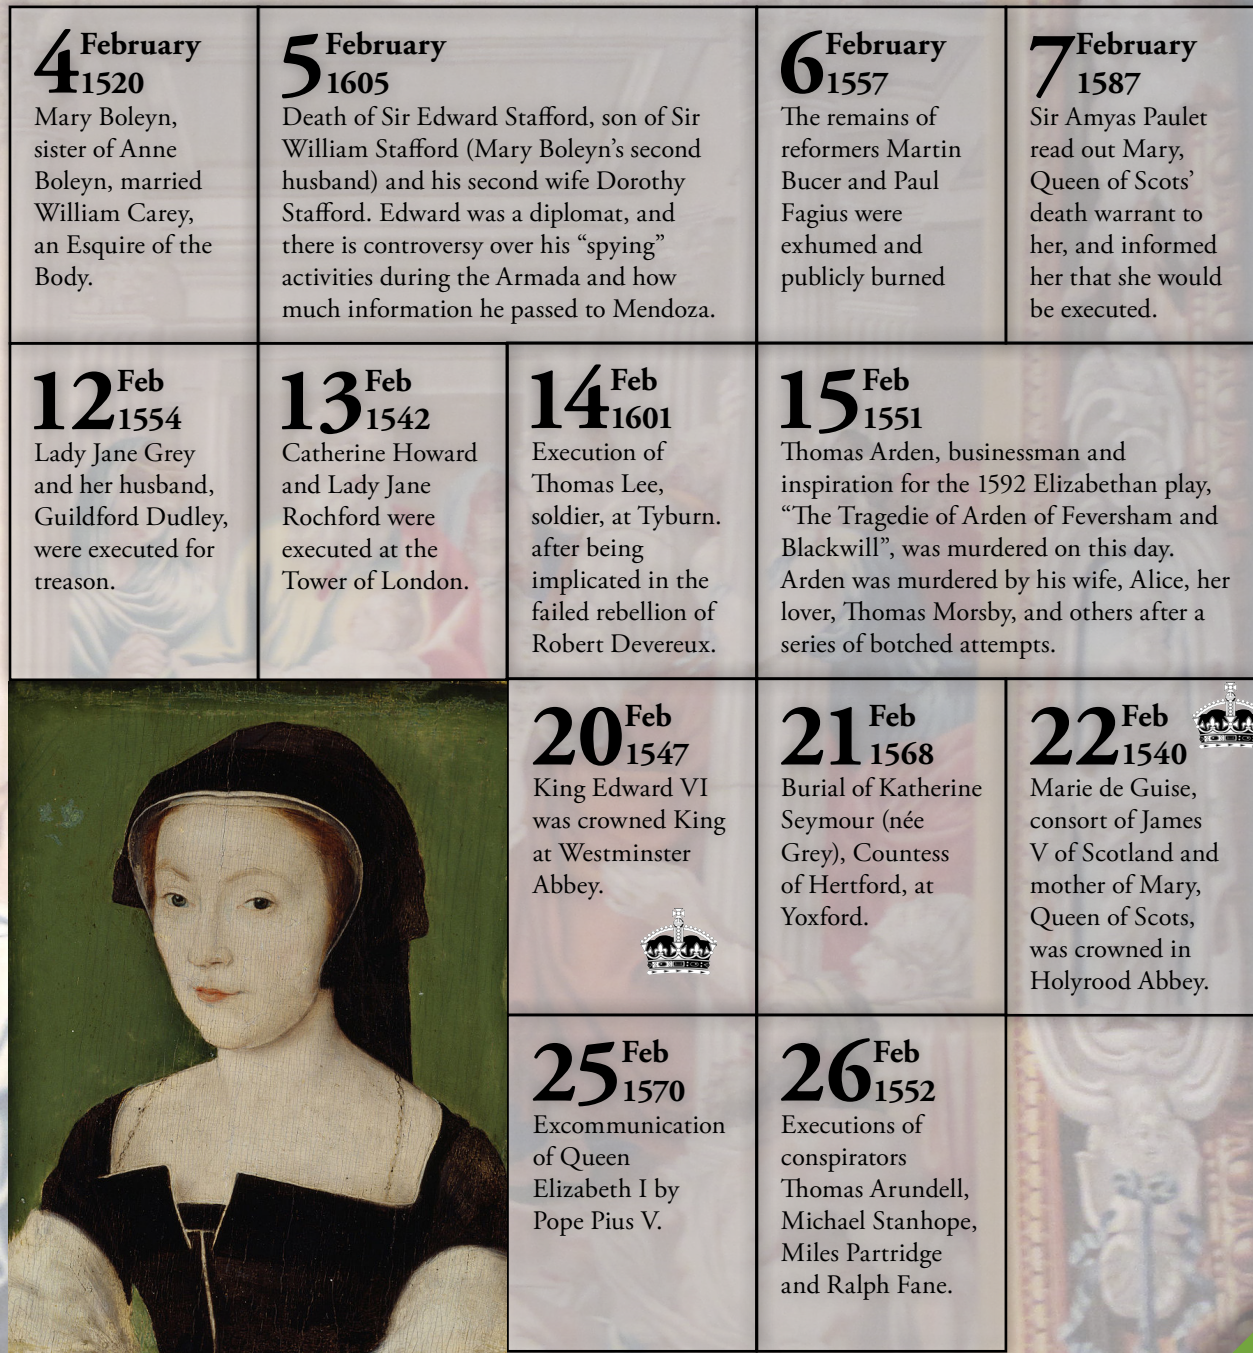 4 February
1520
Mary Boleyn,
sister of Anne
Boleyn, married
William Carey,
an Esquire of the
Body.
5 February
1605
Death of Sir Edward Stafford, son of Sir
William Stafford (Mary Boleyn’s second
husband) and his second wife Dorothy
Stafford. Edward was a diplomat, and
there is controversy over his “spying”
activities during the Armada and how
much information he passed to Mendoza.
6 February
1557
The remains of
reformers Martin
Bucer and Paul
Fagius were
exhumed and
publicly burned
7 February
1587
Sir Amyas Paulet
read out Mary,
Queen of Scots’
death warrant to
her, and informed
her that she would
be executed.
12 Feb
1554
Lady Jane Grey
and her husband,
Guildford Dudley,
were executed for
treason.
13 Feb
1542
Catherine Howard
and Lady Jane
Rochford were
executed at the
Tower of London.
14 Feb
1601
Execution of
Thomas Lee,
soldier, at Tyburn.
after being
implicated in the
failed rebellion of
Robert Devereux.
15 Feb
1551
Thomas Arden, businessman and
inspiration for the 1592 Elizabethan play,
“The Tragedie of Arden of Feversham and
Blackwill”, was murdered on this day.
Arden was murdered by his wife, Alice, her
lover, Thomas Morsby, and others after a
series of botched attempts.
20 Feb
1547
King Edward VI
was crowned King
at Westminster
Abbey.
21 Feb
1568
Burial of Katherine
Seymour (née
Grey), Countess
of Hertford, at
Yoxford.
22 Feb
1540
Marie de Guise,
consort of James
V of Scotland and
mother of Mary,
Queen of Scots,
was crowned in
Holyrood Abbey.
25 Feb
1570
Excommunication
of Queen
Elizabeth I by
Pope Pius V.
26 Feb
1552
Executions of
conspirators
Thomas Arundell,
Michael Stanhope,
Miles Partridge
and Ralph Fane.